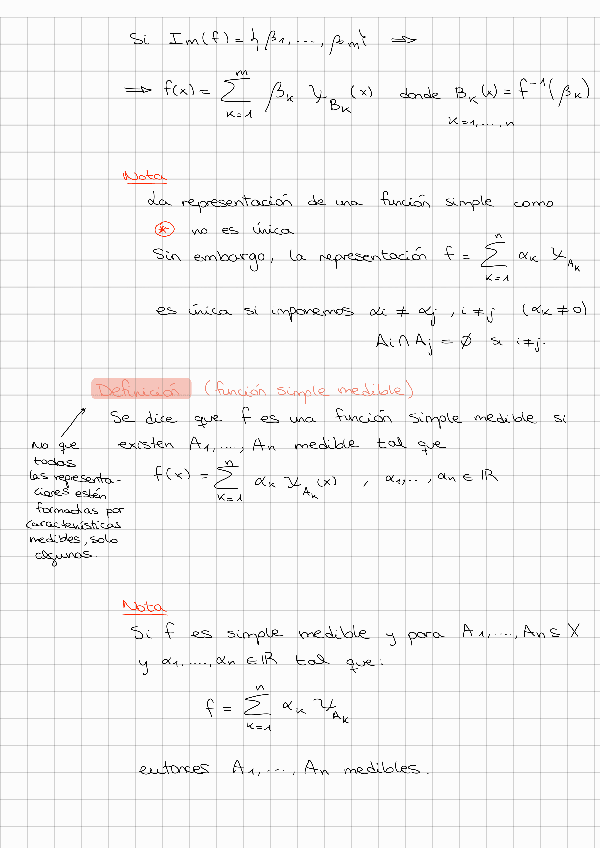 Si Im(f) = {β1, ..., βm} ⟹
⟹ f(x) = ∑_{k=1}^{m} βk χ_{Bk}(x) donde Bk(x) = f^{-1}(βk)
k=1,...,n
Nota
La representación de una función simple como
(*) no es única
Sin embargo, la representación f = ∑_{k=1}^{n} αk χ_{Ak}
es única si imponemos αi ≠ αj, i≠j (αk ≠ 0)
Ai ∩ Aj = ∅ si i≠j.
Definición (función simple medible)
Se dice que f es una función simple medible si
existen A1, ..., An medible tal que
f(x) = ∑_{k=1}^{n} αk χ_{Ak}(x) , α1, ..., αn ∈ ℝ
No que
todas
las representa-
ciones estén
formadas por
características
medibles, solo
algunas.
Nota
Si f es simple medible y para A1, ..., An ⊆ X
y α1, ..., αn ∈ ℝ tal que:
f = ∑_{k=1}^{n} αk χ_{Ak}
entonces A1, ..., An medibles.